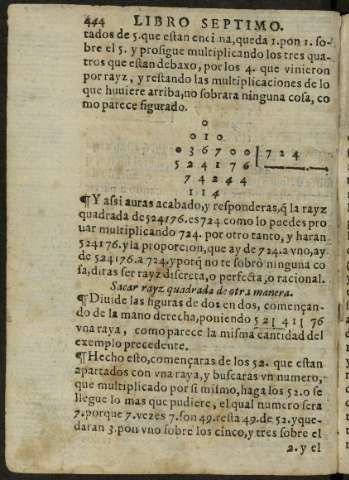 444 LIBRO SEPTIMO.
tados de 5. que estan encima, queda 1. pon 1. so-
bre el 5. y prosigue multiplicando los tres qua-
tros que estan debaxo, por los 4. que vinieron
por rayz, y restando las multiplicaciones de lo
que huuiere arriba, no sobrara ninguna cosa, co
mo parece figurado.
0
0 1 0
0 3 6 7 0 0 | 7 2 4
5 2 4 1 7 6
7 4 2 4 4
1 1 4
¶Y assi auras acabado, y responderas, q̃ la rayz
quadrada de 524176. es 724 como lo puedes pro
uar multiplicando 724. por otro tanto, y haran
524176. y la proporcion, que ay de 724. a vno, ay
de 524176. a 724, y porq̃ no te sobrò ninguna co
sa, diras ser rayz discreta, o perfecta, o racional.
Sacar rayz quadrada de otra manera.
¶Diuide las figuras de dos en dos, començan-
do de la mano derecha, poniendo 52| 41| 76
vna raya, como parece la misma cantidad del
exemplo precedente.
¶Hecho esto, començaras de los 52. que estan
apartados con vna raya, y buscaras vn numero,
que multiplicado por si mismo, haga los 52. o se
llegue lo mas que pudiere, el qual numero sera
7. porque 7. vezes 7. son 49. resta 49. de 52. y que-
daran 3. pon vno sobre los cinco, y tres sobre el
2. y el